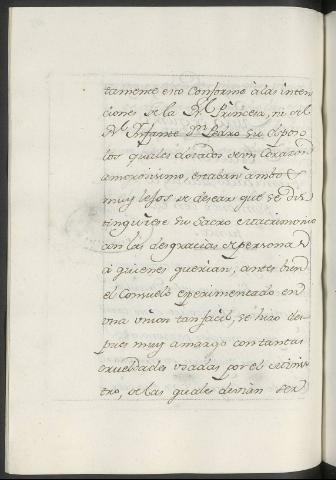 tamente era Conforme à las inten
ciones de la Rl. Princesa, ni del
Rl. Infante Dn. Pedro su esposo
los quales dotados de un Corazon
amorosisimo, estaban ambos
muy lejos de desear que se dis
tinguiese su Sacro Matrimonio
con las desgracias de personas
à quienes querian, antes bien
el Consuelo esperimentado en
una union tan facil, se hizo des
pues muy amargo con tantas
crueldades usadas por el Minis
tro, de las quales devian ser